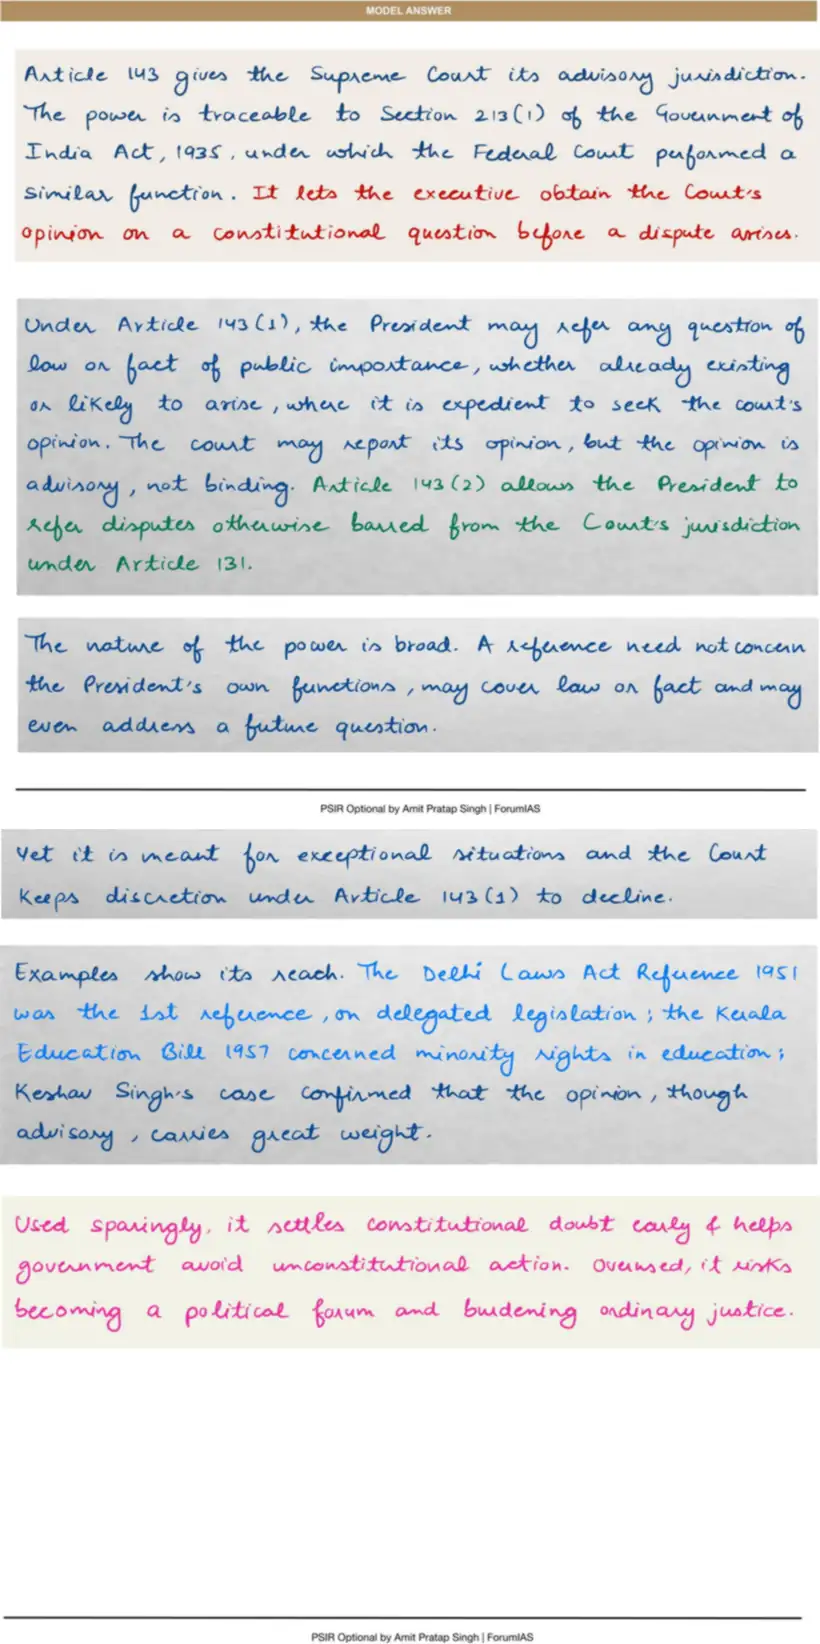 MODEL ANSWER
Article 143 gives the Supreme Court its advisory jurisdiction.
The power is traceable to Section 213(1) of the Government of
India Act, 1935, under which the Federal Court performed a
similar function. It lets the executive obtain the Court's
opinion on a constitutional question before a dispute arises.
Under Article 143(1), the President may refer any question of
law or fact of public importance, whether already existing
or likely to arise, where it is expedient to seek the court's
opinion. The court may report its opinion, but the opinion is
advisory, not binding. Article 143(2) allows the President to
refer disputes otherwise barred from the Court's jurisdiction
under Article 131.
The nature of the power is broad. A reference need not concern
the President's own functions, may cover law or fact and may
even address a future question.
PSIR Optional by Amit Pratap Singh | ForumIAS
Yet it is meant for exceptional situations and the Court
keeps discretion under Article 143(1) to decline.
Examples show its reach. The Delhi Laws Act Reference 1951
was the 1st reference, on delegated legislation; the Kerala
Education Bill 1957 concerned minority rights in education;
Keshav Singh's case confirmed that the opinion, though
advisory, carries great weight.
Used sparingly, it settles constitutional doubt early & helps
government avoid unconstitutional action. Overused, it risks
becoming a political forum and burdening ordinary justice.
PSIR Optional by Amit Pratap Singh | ForumIAS